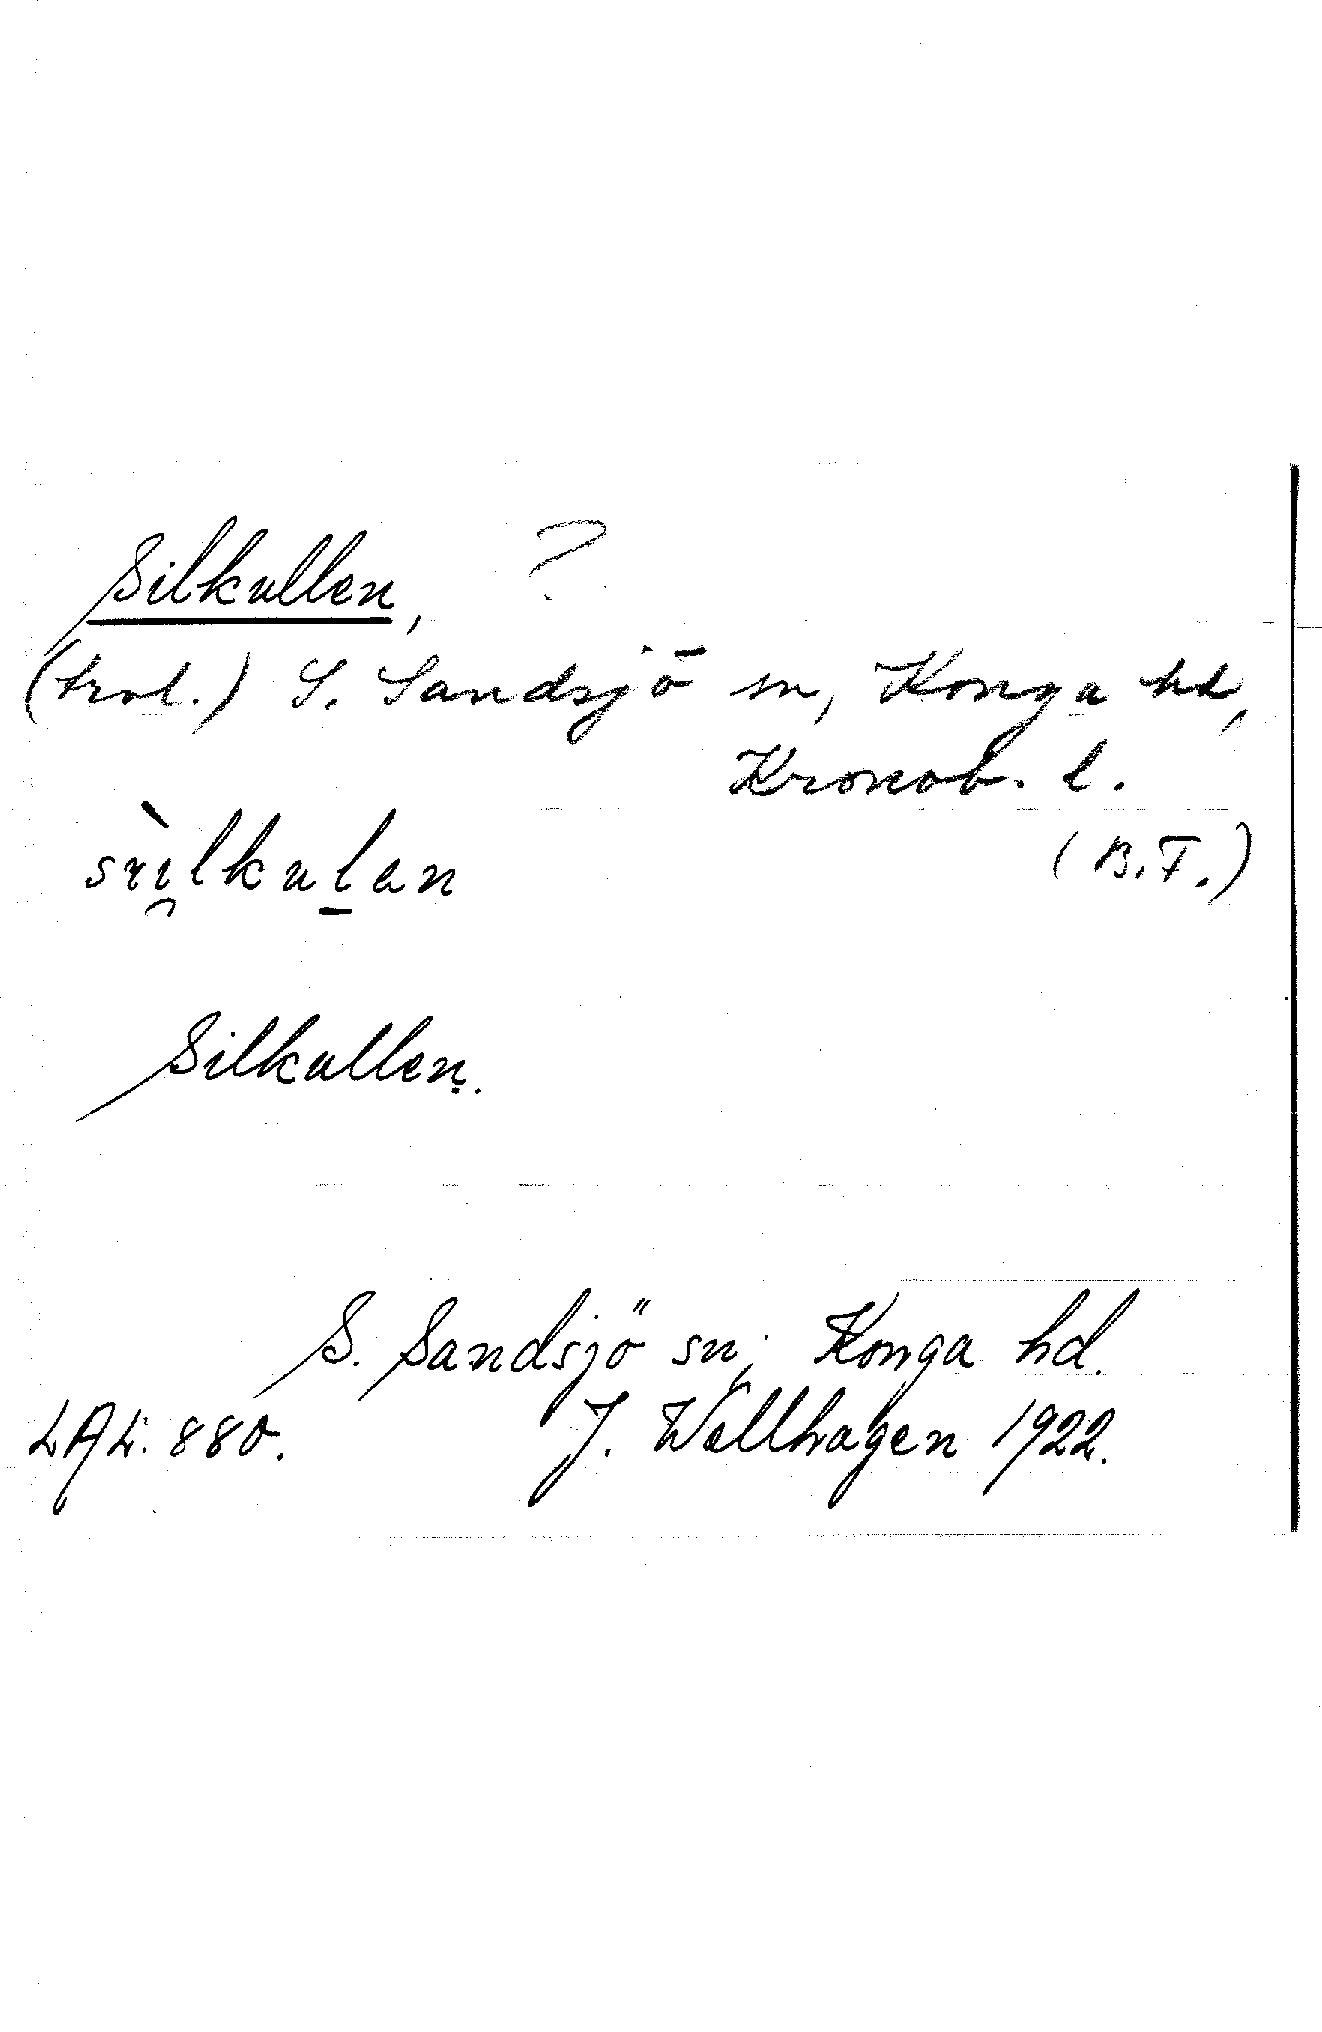 Silkullen, ?
(trol.) S. Sandsjö sn, Konga hd,
Kronob. l.
(B.F.)
sìlkulan
Silkullen.
S. Sandsjö sn, Konga hd.
LAL. 880. J. Wallhagen 1922.